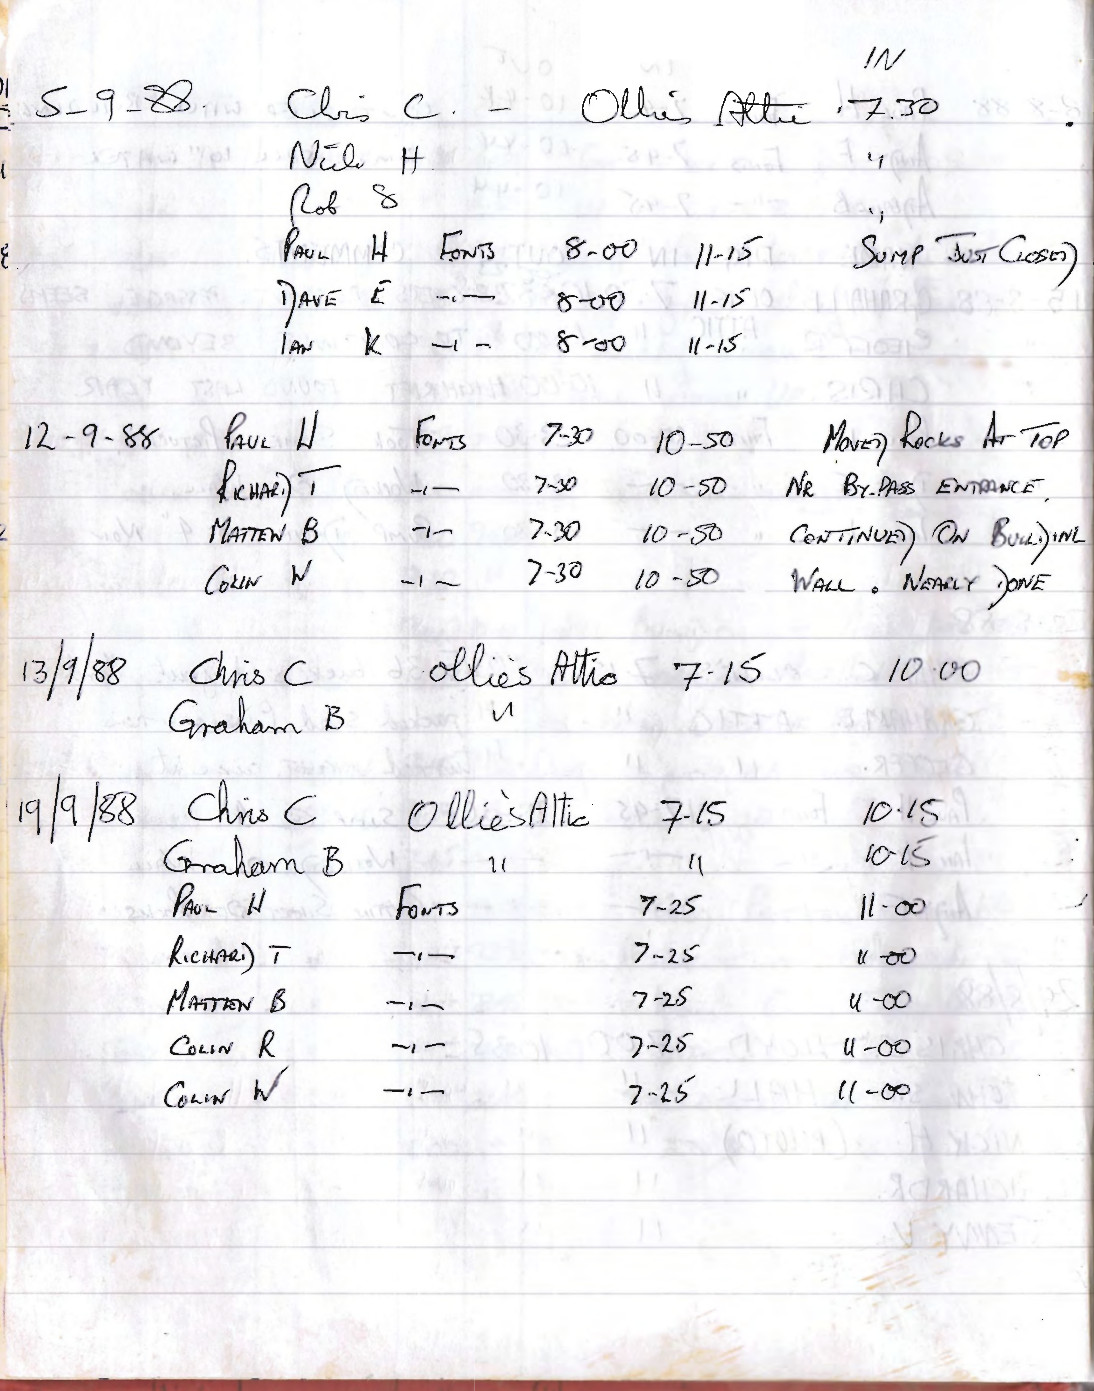 IN
5-9-88. Chris C. - Ollie's Attic 7.30
Nick H "
Rob S "
PAUL H FONTS 8-00 11-15 SUMP JUST CLOSED
DAVE E -"- 8-00 11-15
IAN K -"- 8-00 11-15
12-9-88 PAUL H FONTS 7-30 10-50 MOVED ROCKS AT TOP
RICHARD T -"- 7-30 10-50 NR BY-PASS ENTRANCE.
MATTEW B -"- 7-30 10-50 CONTINUED ON BUILDING
COLIN W -"- 7-30 10-50 WALL. NEARLY DONE
13/9/88 Chris C Ollie's Attic 7-15 10.00
Graham B "
19/9/88 Chris C Ollie's Attic 7-15 10.15
Graham B " " 10-15
PAUL H FONTS 7-25 11-00
RICHARD T -"- 7-25 11-00
MATTEW B -"- 7-25 11-00
COLIN R -"- 7-25 11-00
COLIN W -"- 7-25 11-00